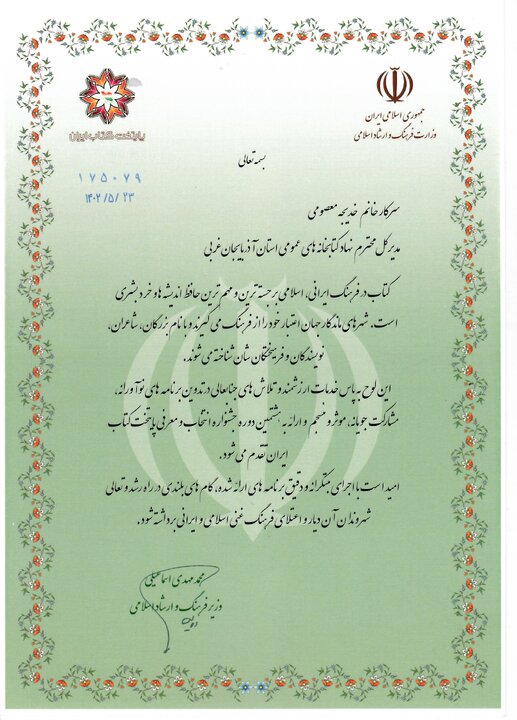 جمهوری اسلامی ایران
وزارت فرهنگ و ارشاد اسلامی
پایتخت کتاب ایران
بسمه تعالی
۱۷۵۰۷۹
۱۴۰۲/۵/۲۳
سرکار خانم خدیجه معصومی
مدیرکل محترم نهاد کتابخانه های عمومی استان آذربایجان غربی
کتاب در فرهنگ ایرانی، اسلامی برجسته ترین و مهم ترین حافظ اندیشه ها و خرد بشری
است. شهرهای ماندگار جهان اعتبار خود را از فرهنگ می گیرند و با نام بزرگان، شاعران،
نویسندگان و فرهیختگان شان شناخته می شوند.
این لوح به پاس خدمات ارزشمند و تلاش های جنابعالی در تدوین برنامه های نوآورانه،
مشارکت جویانه، موثر و منسجم و ارائه به هشتمین دوره جشنواره انتخاب و معرفی پایتخت کتاب
ایران تقدیم می شود.
امید است با اجرای مبتکرانه و دقیق برنامه های ارائه شده، گام های بلندی در راه رشد و تعالی
شهروندان آن دیار و اعتلای فرهنگ غنی اسلامی و ایرانی برداشته شود.
محمد مهدی اسماعیلی
وزیر فرهنگ و ارشاد اسلامی